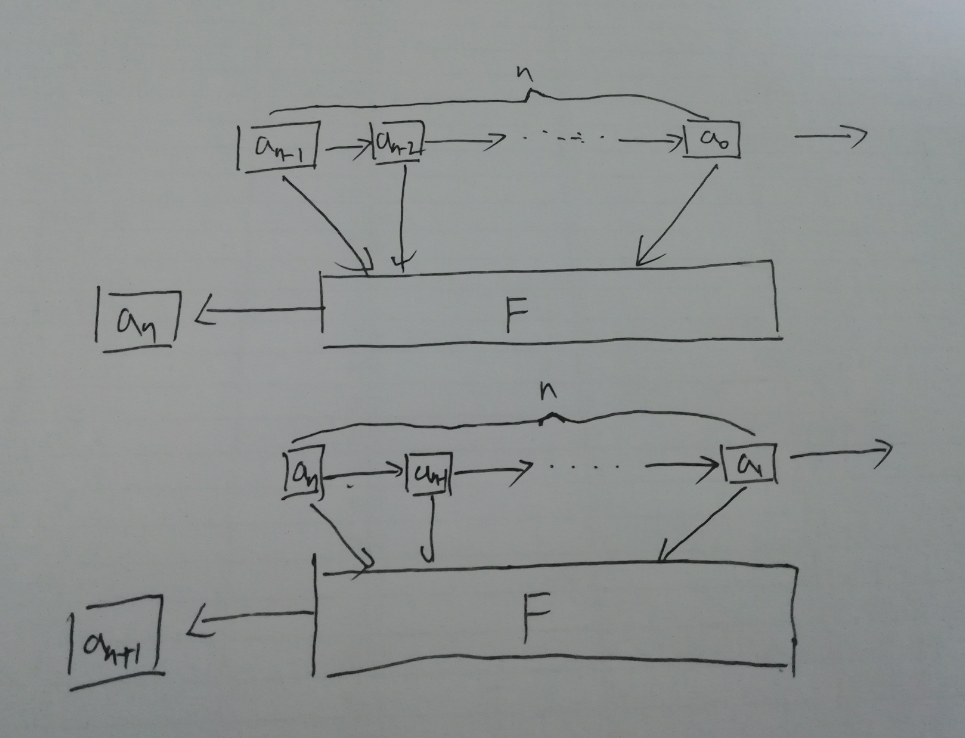 n
a_{n-1} a_{n-2} ...... a_0
F
a_n
n
a_n a_{n-1} .... a_1
F
a_{n+1}